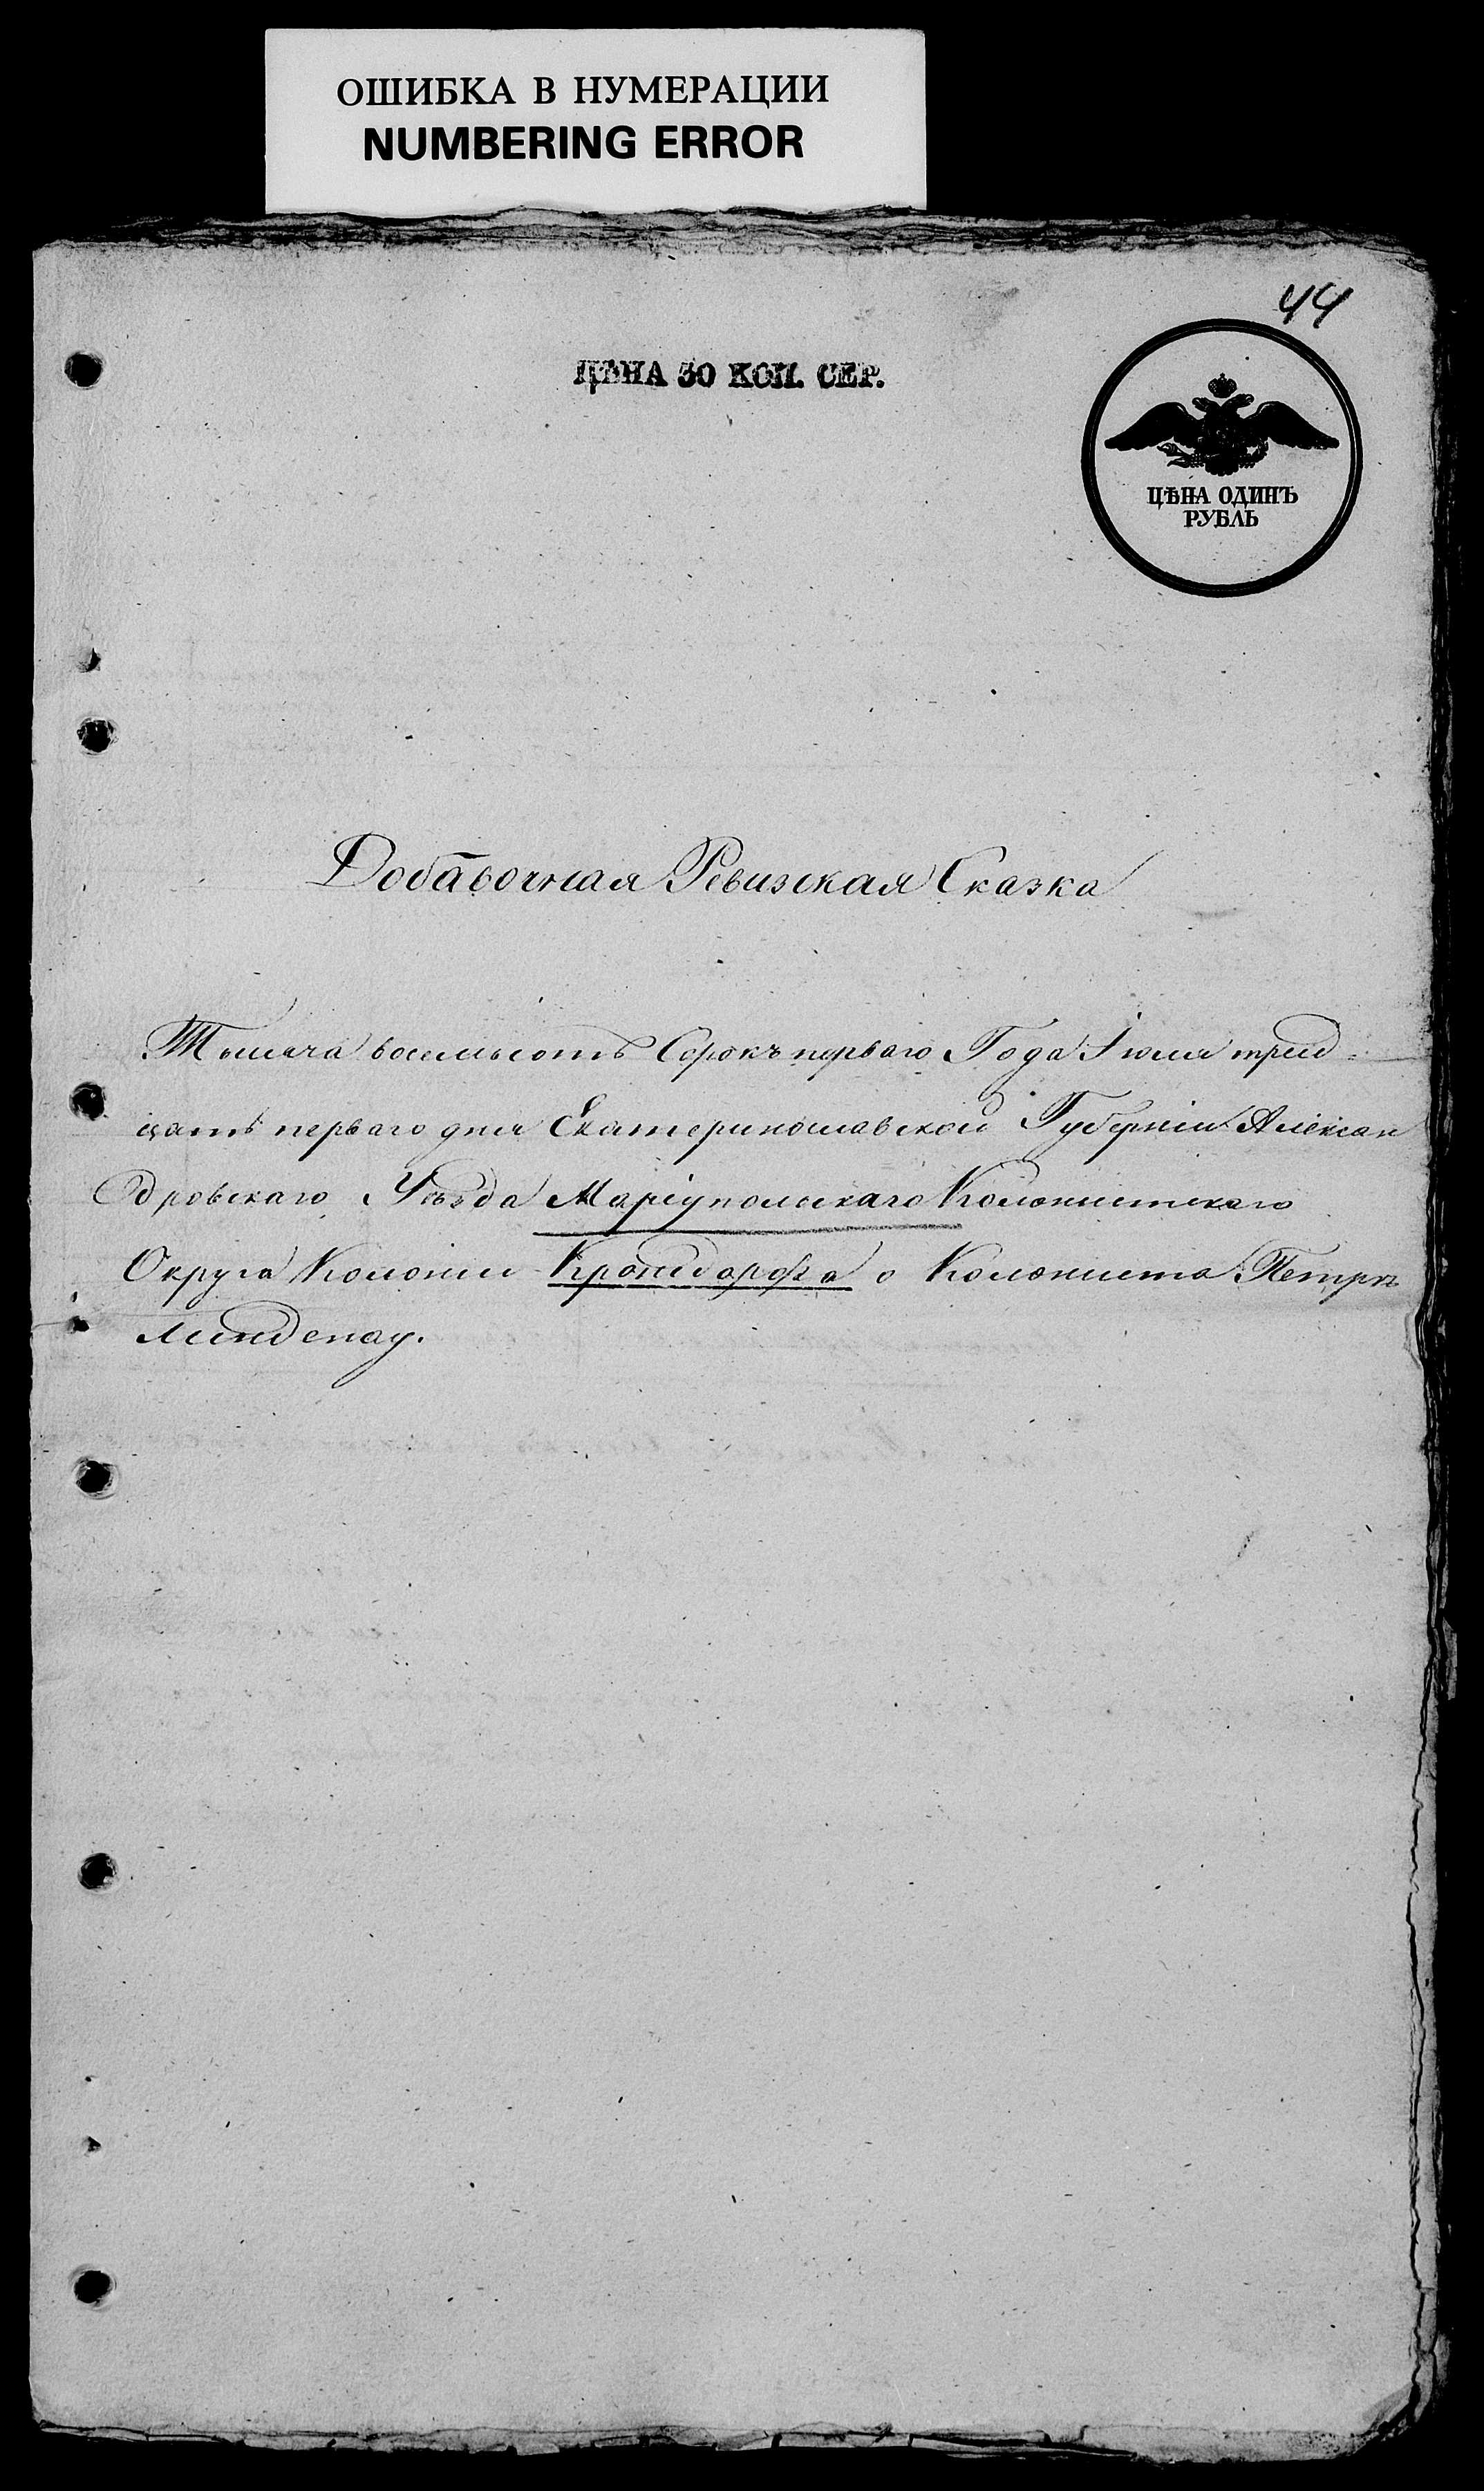 ОШИБКА В НУМЕРАЦИИ
NUMBERING ERROR
44
ЦѢНА 30 КОП. СЕР.
ЦѢНА ОДИНЪ
РУБЛЬ
Добавочная Ревизская Сказка
Тысяча восемьсотъ Сорокъ перваго Года Іюля трид-
цать перваго дня Екатеринославской Губерніи Алексан
дровскаго Уѣзда Маріупольскаго Колонистскаго
Округа Колоніи Кронсдорфа о Колониста Петръ
Линденау.